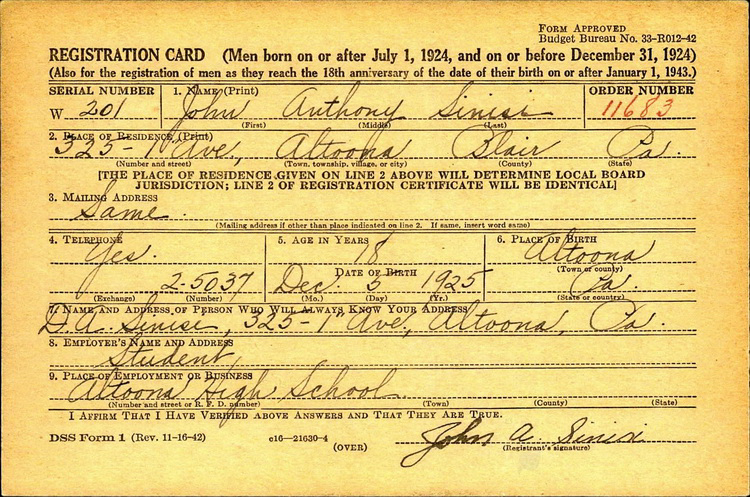 FORM APPROVED
Budget Bureau No. 33-R012-42
REGISTRATION CARD (Men born on or after July 1, 1924, and on or before December 31, 1924)
(Also for the registration of men as they reach the 18th anniversary of the date of their birth on or after January 1, 1943.)
SERIAL NUMBER 1. NAME (Print) ORDER NUMBER
W 201 John Anthony Sinisi 11683
(First) (Middle) (Last)
2. PLACE OF RESIDENCE (Print)
325-1 Ave, Altoona Blair Pa.
(Number and street) (Town, township, village, or city) (County) (State)
[THE PLACE OF RESIDENCE GIVEN ON LINE 2 ABOVE WILL DETERMINE LOCAL BOARD
JURISDICTION; LINE 2 OF REGISTRATION CERTIFICATE WILL BE IDENTICAL]
3. MAILING ADDRESS
Same.
(Mailing address if other than place indicated on line 2. If same, insert word same)
4. TELEPHONE 5. AGE IN YEARS 6. PLACE OF BIRTH
Yes. 18 Altoona
DATE OF BIRTH (Town or county)
2-5037 Dec. 5 1925 Pa.
(Exchange) (Number) (Mo.) (Day) (Yr.) (State or country)
7. NAME AND ADDRESS OF PERSON WHO WILL ALWAYS KNOW YOUR ADDRESS
D. A. Sinisi, 325-1 Ave, Altoona, Pa.
8. EMPLOYER'S NAME AND ADDRESS
Student
9. PLACE OF EMPLOYMENT OR BUSINESS
Altoona High School
(Number and street or R. F. D. number) (Town) (County) (State)
I AFFIRM THAT I HAVE VERIFIED ABOVE ANSWERS AND THAT THEY ARE TRUE.
DSS Form 1 (Rev. 11-16-42) e16—21630-4 John A. Sinisi
(OVER) (Registrant's signature)